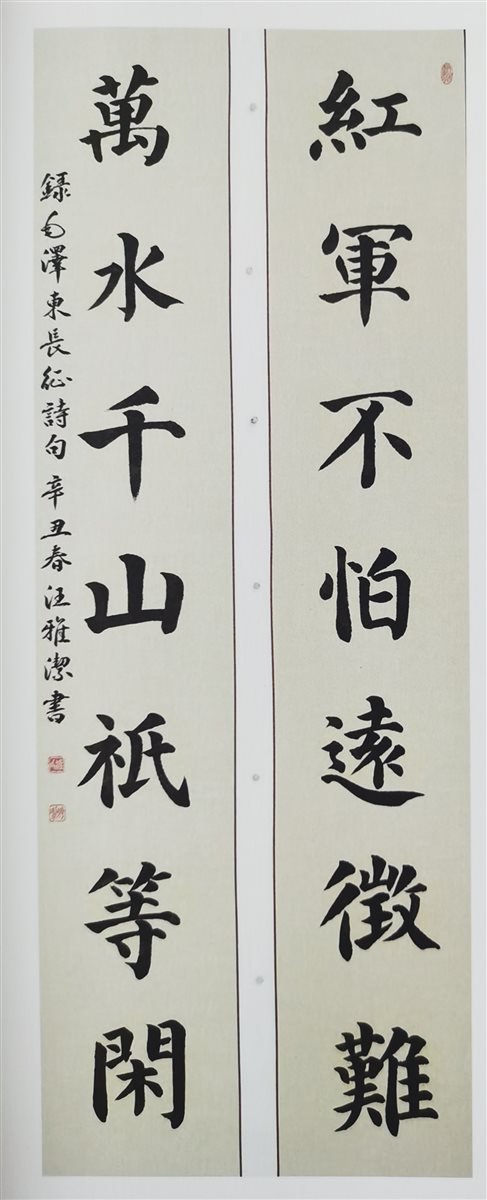 紅軍不怕遠徵難
萬水千山祇等閑
録毛澤東長征詩句辛丑春汪雅潔書